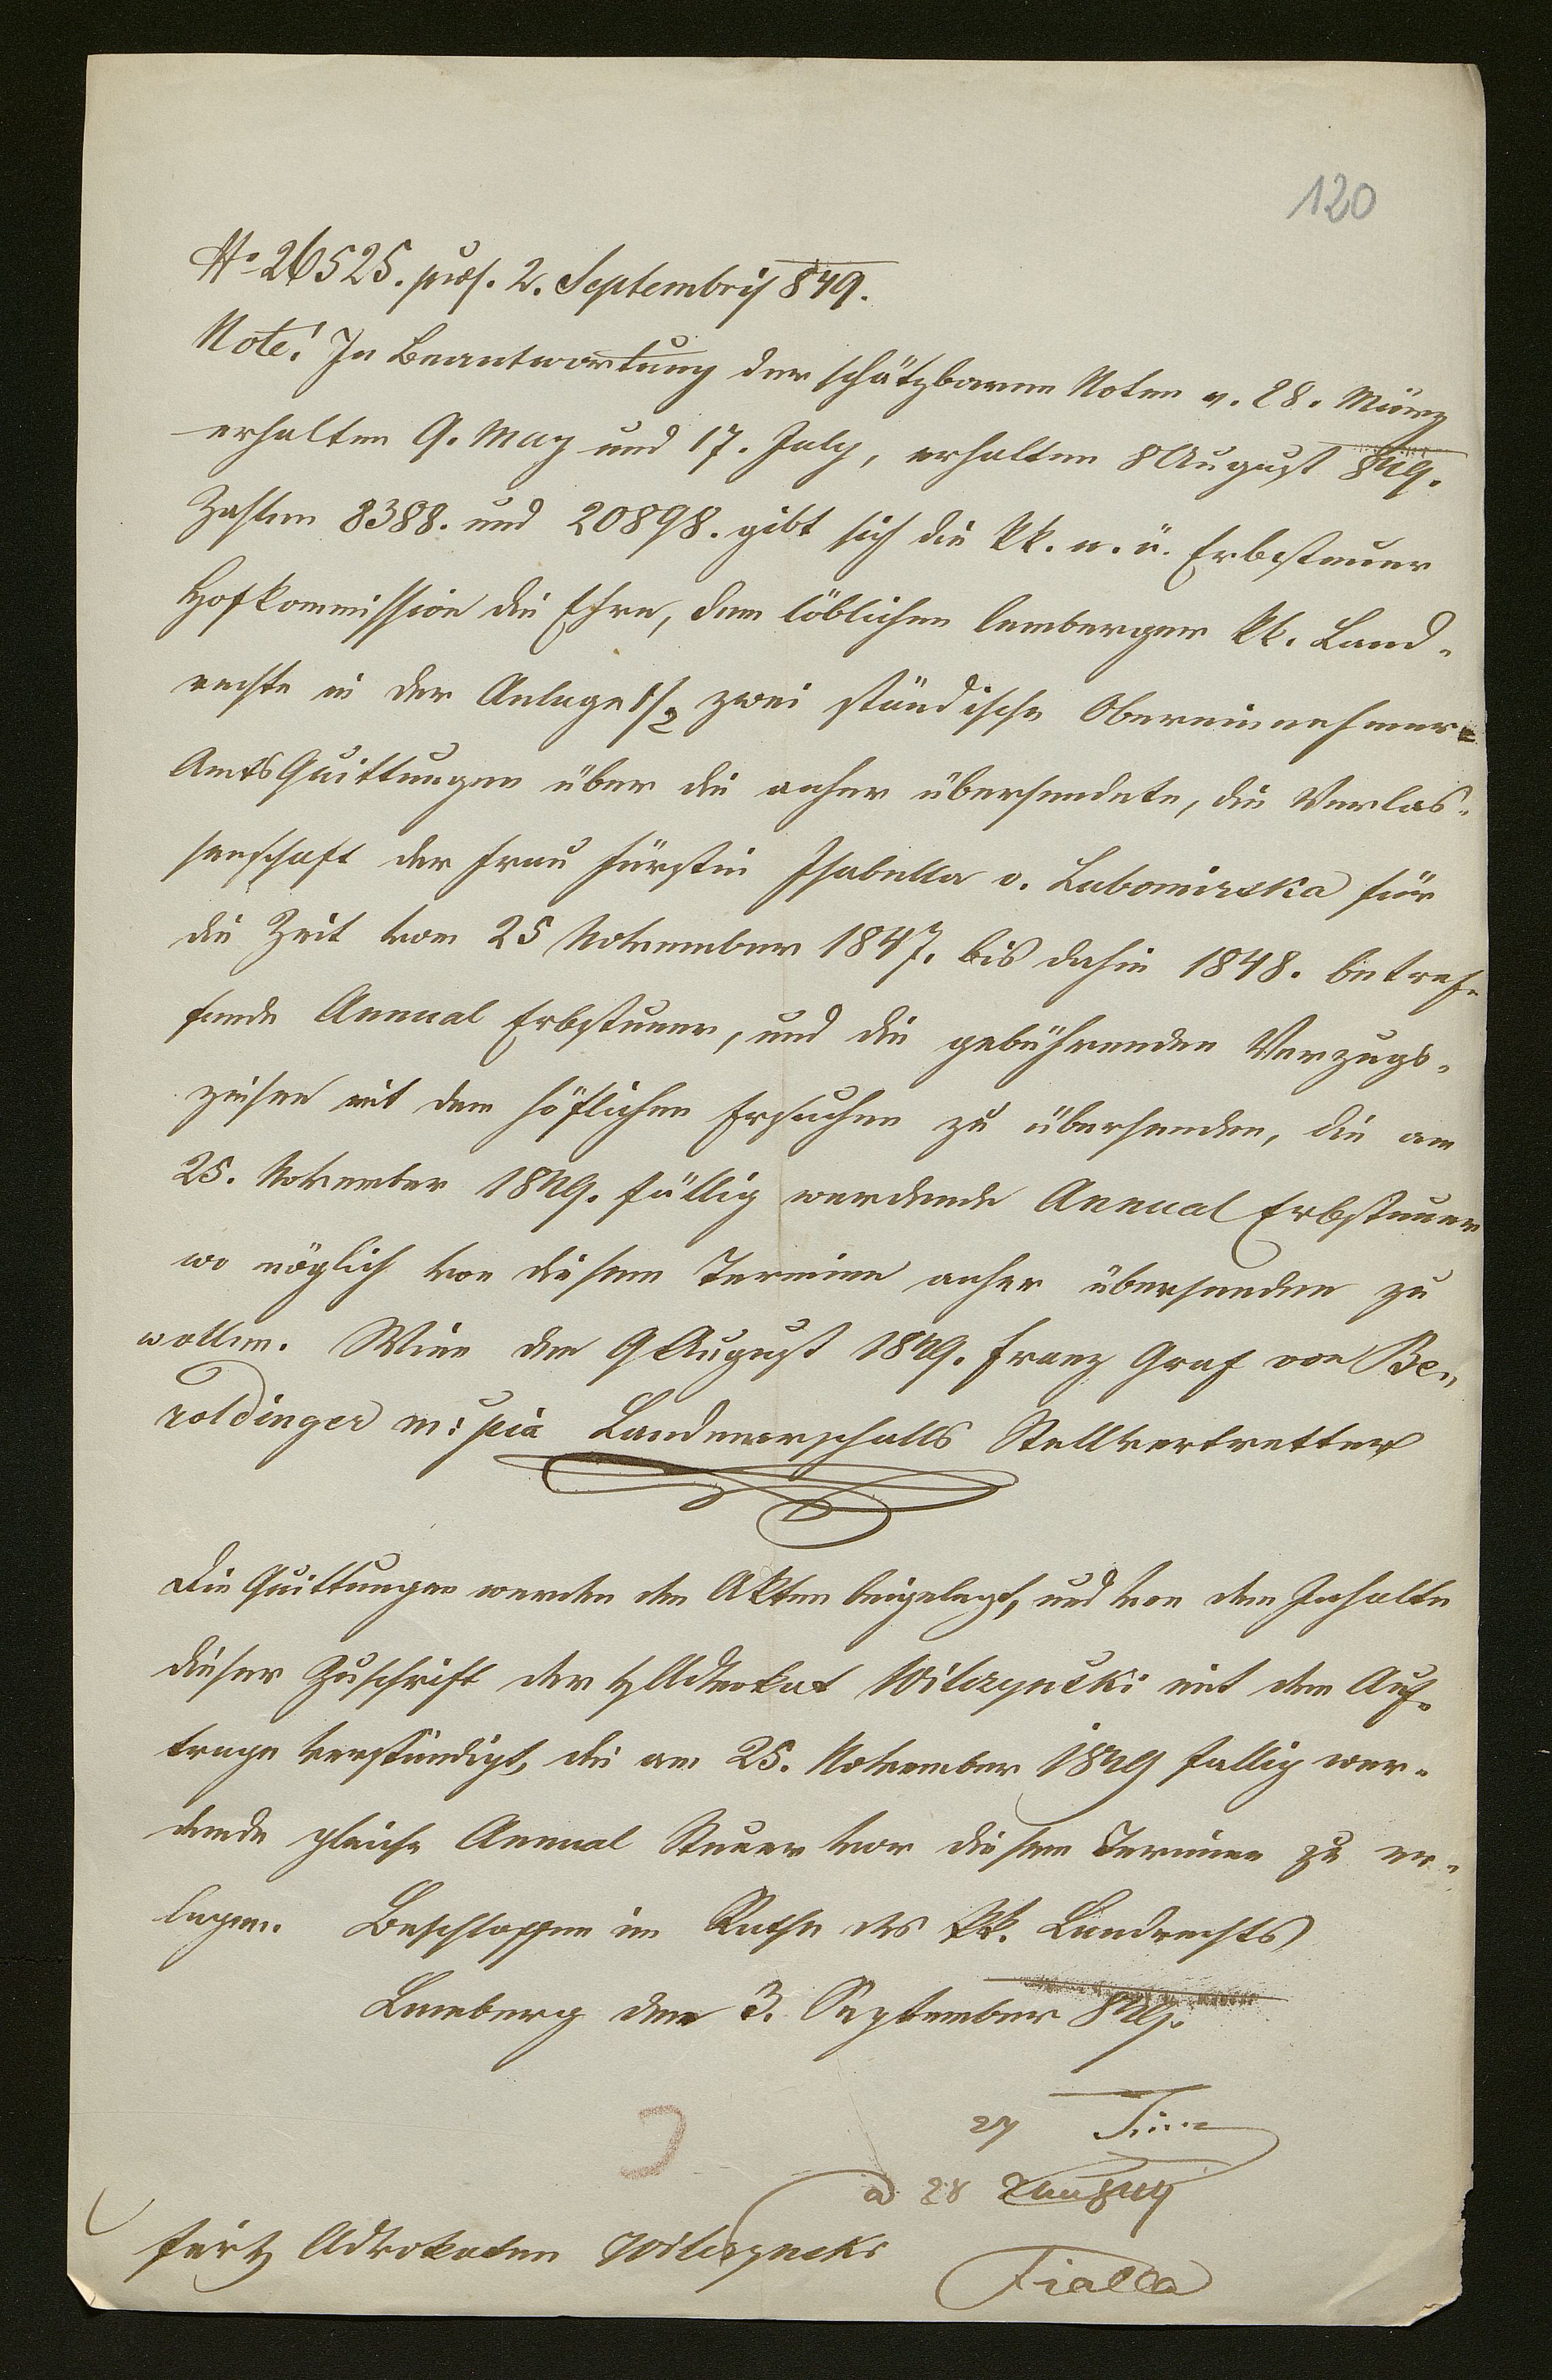 120
No 26525. präs. 2. Septembris 849.
Note! In Beantwortung der schätzbaren Noten v. 28. März
erhalten 9. May und 17. July, erhalten 8 August 849.
Zahlen 8388. und 20898. gibt sich die kk. n. ö. Erbsteuer
Hofkommission die Ehre, dem löblichen lemberger kk. Land-
rechte in der Anlage 1/2 zwei ständische Obereinnehmer-
Amts Quittungen über die anher übersendete, die Verlas-
senschaft der Frau Fürstin Isabella v. Lubomirska für
die Zeit vom 25 November 1847. bis dahin 1848. betref-
fende Annual Erbsteuer, und die gebührenden Verzugs-
zinsen mit dem höflichen Ersuchen zu übersenden, die am
25. November 1849. fällig werdende Annual Erbsteuer
wo möglich vor diesem Termine anher übersenden zu
wollen. Wien den 9 August 1849. Franz Graf von Be-
roldinger m: pia Landmarschalls Stellvertretter
Die Quittungen werden den Akten beigelegt, und von dem Inhalte
dieser Zuschrift der H Advokat Wilczynski mit dem Auf-
trage verständigt, die am 25. November 1849 fällig wer-
dende gleiche Annual Steuer vor diesem Termine zu er-
legen. Beschlossen im Rathe des kk. Landrechts
Lemberg den 3. September 849.
27
28 849
für H Advokaten Wilczynski
Fialla